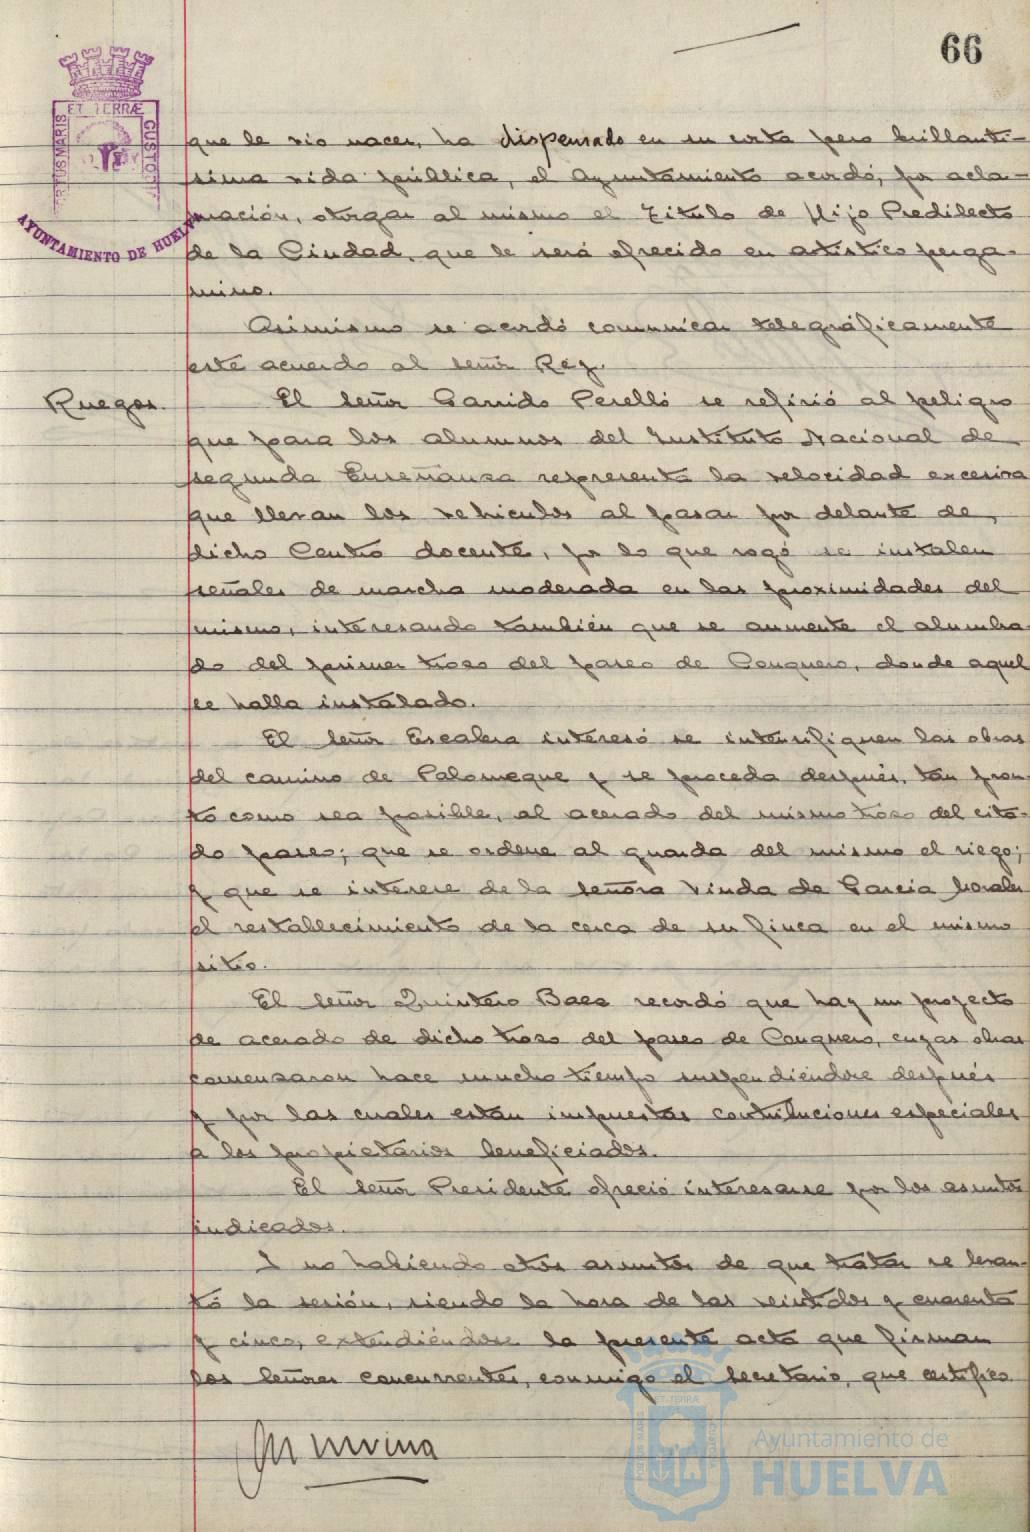 66
ET TERRÆ
PORTUS MARIS
CUSTODIA
AYUNTAMIENTO DE HUELVA
que le vio nacer, ha dispensado en su corta pero brillantí-
sima vida pública, el Ayuntamiento acordó, por acla-
mación, otorgar al mismo el Título de Hijo Predilecto
de la Ciudad, que le será ofrecido en artístico perga-
mino.
Asimismo se acordó comunicar telegráficamente
este acuerdo al señor Rey.
Ruegos.
El señor Garrido Perelló se refirió al peligro
que para los alumnos del Instituto Nacional de
segunda Enseñanza representa la velocidad excesiva
que llevan los vehículos al pasar por delante de
dicho Centro docente, por lo que rogó se instalen
señales de marcha moderada en las proximidades del
mismo, interesando también que se aumente el alumbra-
do del primer trozo del paseo de Conquero, donde aquel
se halla instalado.
El señor Escalera interesó se intensifiquen las obras
del camino de Palomeque y se proceda después, tan pron-
to como sea posible, al acerado del mismo trozo del cita-
do paseo; que se ordene al guarda del mismo el riego;
y que se interese de la señora Viuda de García Morales
el restablecimiento de la cerca de su finca en el mismo
sitio.
El señor Quintero Baez recordó que hay un proyecto
de acerado de dicho trozo del paseo de Conquero, cuyas obras
comenzaron hace mucho tiempo suspendiéndose después
y por las cuales están impuestas contribuciones especiales
a los propietarios beneficiados.
El señor Presidente ofreció interesarse por los asuntos
indicados.
Y no habiendo otros asuntos de que tratar se levan-
tó la sesión, siendo la hora de las veintidos y cuarenta
y cinco, extendiéndose la presente acta que firman
los señores concurrentes, conmigo el secretario, que certifico
Ayuntamiento de
HUELVA